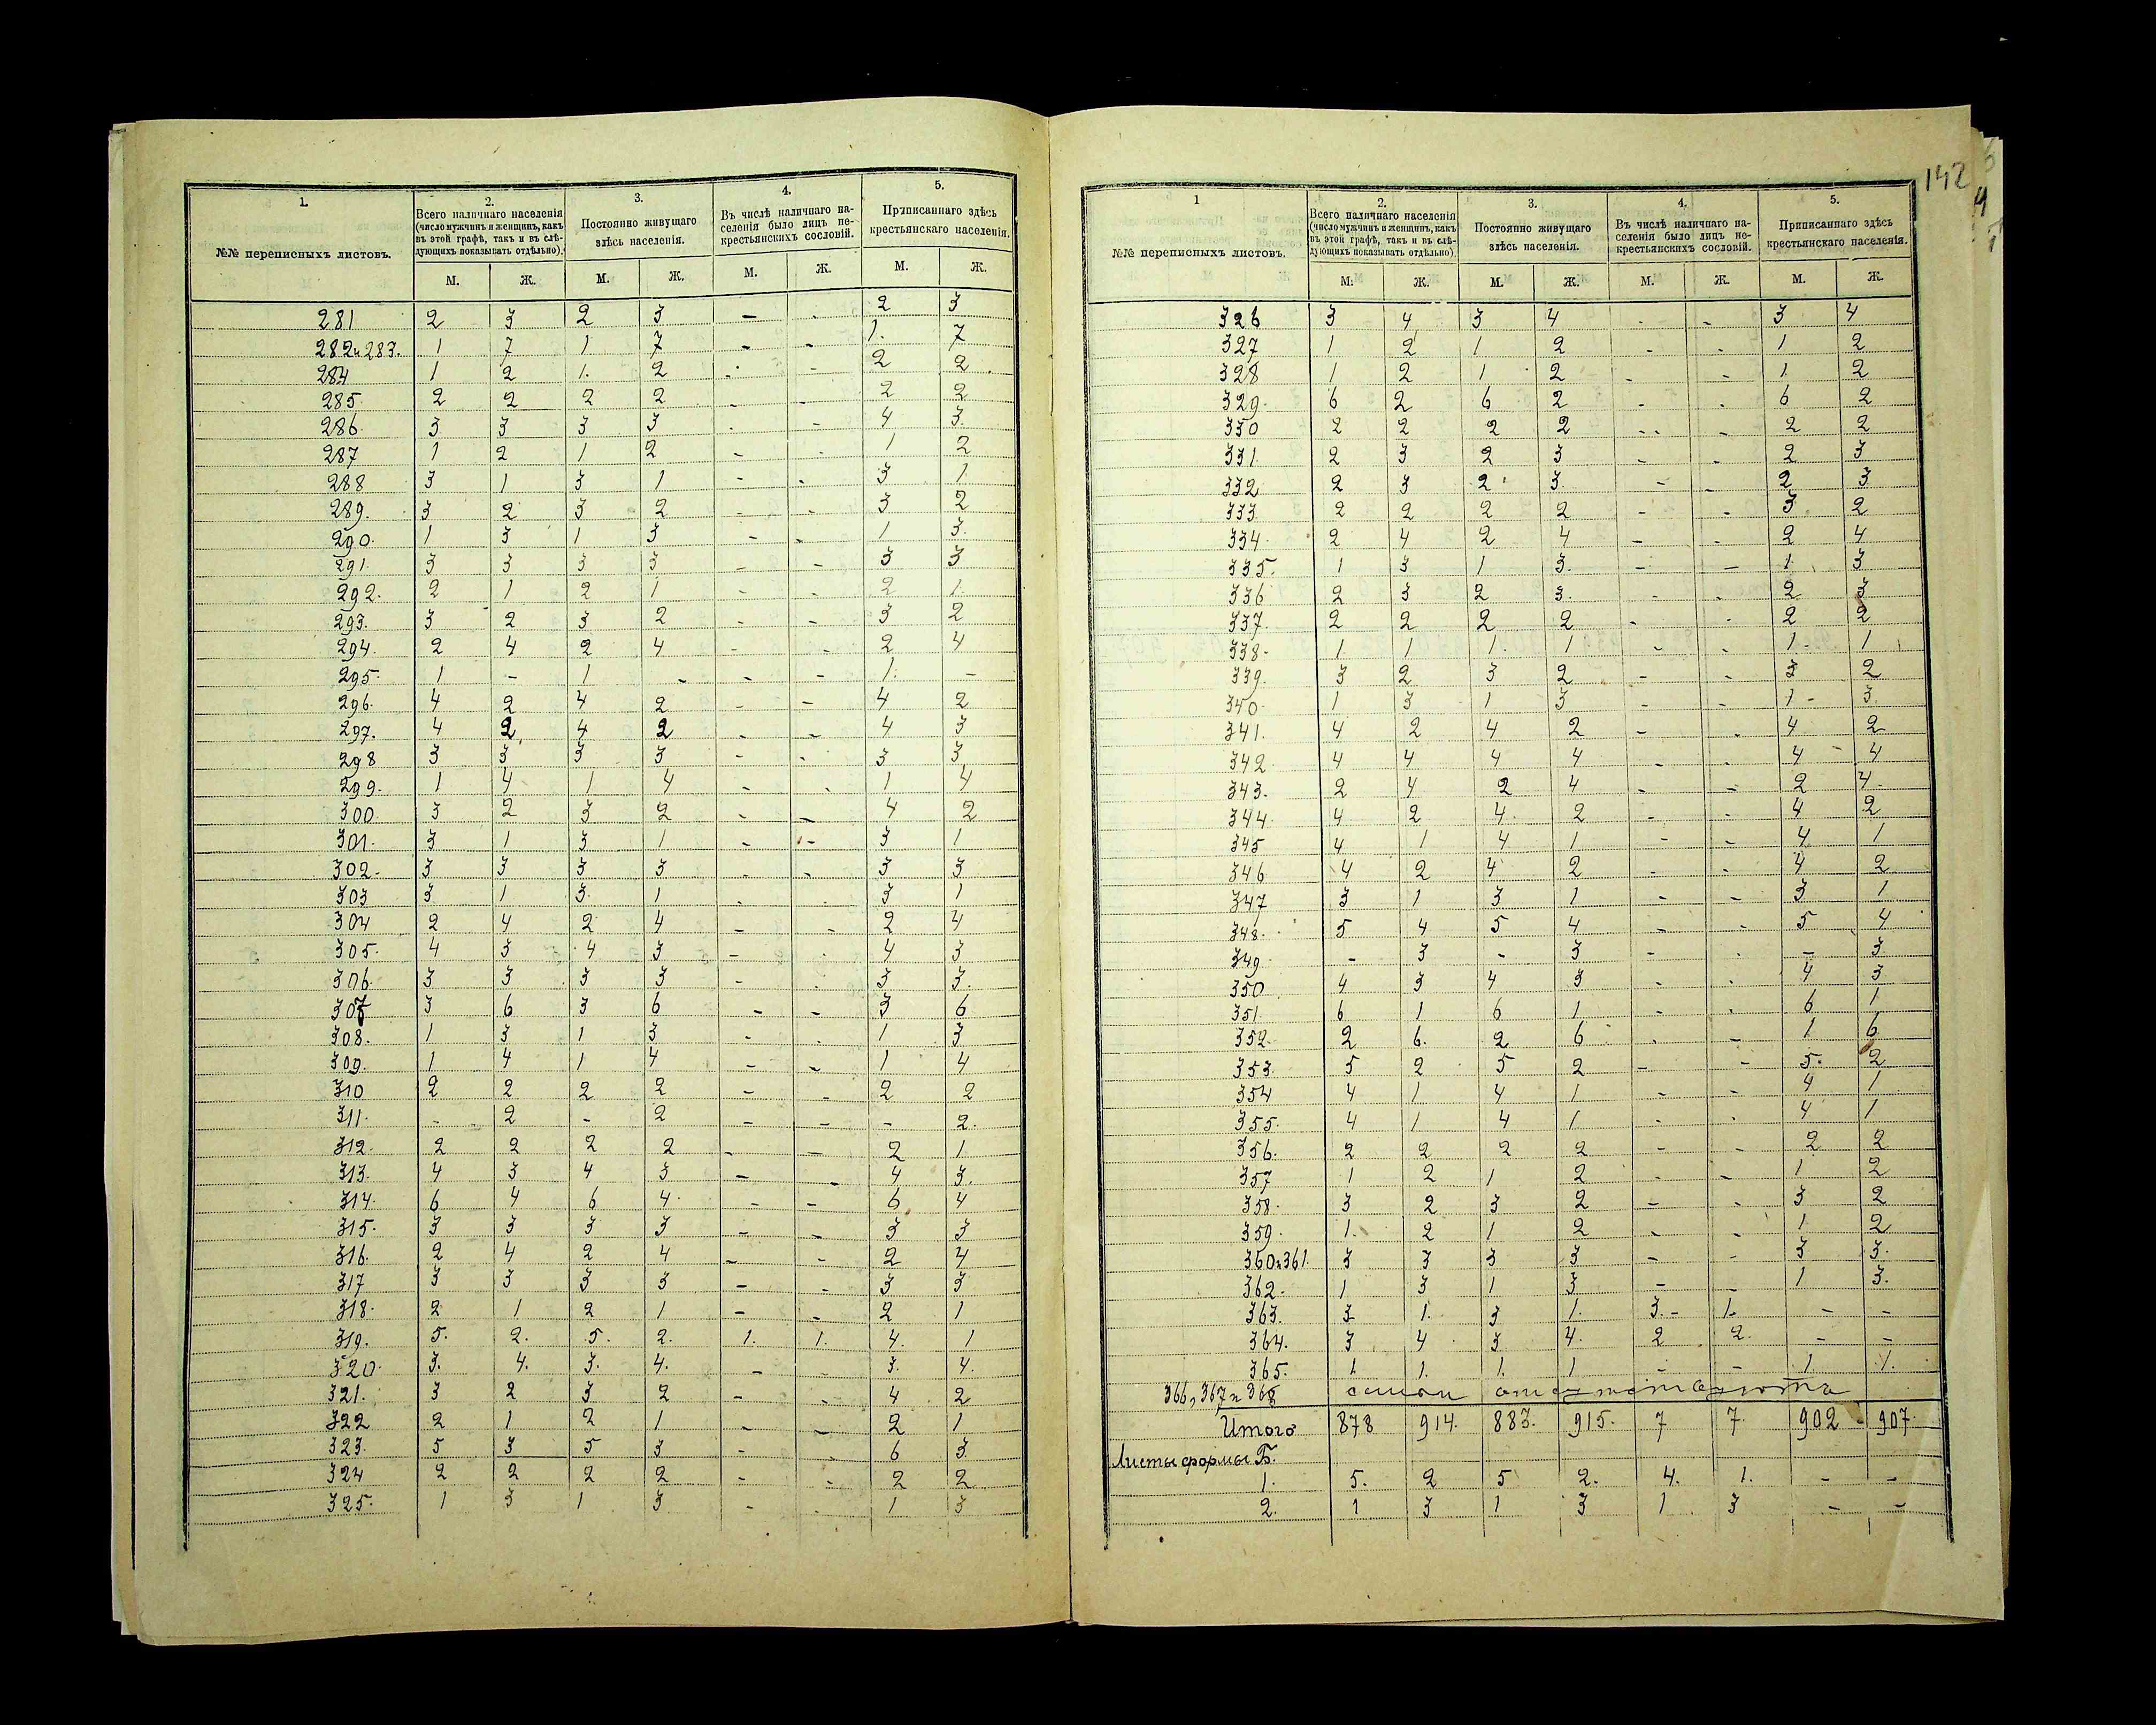 142
1. 2. 3. 4. 5.
№№ переписныхъ листовъ.
Всего наличнаго населенія
(число мужчинъ и женщинъ, какъ
въ этой графѣ, такъ и въ слѣ-
дующихъ показывать отдѣльно).
Постоянно живущаго
здѣсь населенія.
Въ числѣ наличнаго на-
селенія было лицъ не-
крестьянскихъ сословій.
Приписаннаго здѣсь
крестьянскаго населенія.
М. Ж. М. Ж. М. Ж. М. Ж.
281 2 3 2 3 - - 2 3
282 и 283. 1 7 1 7 - - 1. 7
284 1 2 1. 2 - - 2 2
285. 2 2 2 2 - - 2 2
286. 3 3 3 3 - - 4 3.
287 1 2 1 2 - - 1 2
288 3 1 3 1 - - 3 1
289. 3 2 3 2 - - 3 2
290. 1 3 1 3 - - 1 3.
291. 3 3 3 3 - - 3 3
292. 2 1 2 1 - - 2 1.
293. 3 2 3 2 - - 3 2
294. 2 4 2 4 - - 2 4
295. 1 - 1 - - - 1. -
296. 4 2 4 2 - - 4 2
297. 4 2 4 2 - - 4 3
298 3 3 3 3 - - 3 3
299. 1 4 1 4 - - 1 4
300. 3 2 3 2 - - 4 2
301. 3 1 3 1 - - 3 1
302. 3 3 3 3 - - 3 3
303 3 1 3. 1 - - 3 1
304 2 4 2 4 - - 2 4
305. 4 3 4 3 - - 4 3
306. 3 3 3 3 - - 3 3.
307 3 6 3 6 - - 3 6
308. 1 3 1 3 - - 1 3
309. 1 4 1 4 - - 1 4
310 2 2 2 2 - - 2 2
311. - 2 - 2 - - - 2.
312. 2 2 2 2 - - 2 1
313. 4 3 4 3 - - 4 3.
314. 6 4 6 4. - - 6 4
315. 3 3 3 3 - - 3 3
316. 2 4 2 4 - - 2 4
317 3 3 3 3 - - 3 3
318. 2 1 2 1 - - 2 1
319. 5. 2. 5. 2. 1. 1. 4. 1
320. 3. 4. 3. 4. - - 3. 4.
321. 3 2 3 2 - - 4 2
322 2 1 2 1 - - 2 1
323. 5 3 5 3 - - 6 3
324 2 2 2 2 - - 2 2
325. 1 3 1 3 - - 1 3
1 2. 3. 4. 5.
№№ переписныхъ листовъ.
Всего наличнаго населенія
(число мужчинъ и женщинъ, какъ
въ этой графѣ, такъ и въ слѣ-
дующихъ показывать отдѣльно)
Постоянно живущаго
здѣсь населенія.
Въ числѣ наличнаго на-
селенія было лицъ не-
крестьянскихъ сословій.
Приписаннаго здѣсь
крестьянскаго населенія.
М. Ж. М. Ж. М. Ж. М. Ж.
326 3 4 3 4 - - 3 4
327 1 2 1 2 - - 1 2
328 1 2 1 2 - - 1 2
329. 6 2 6 2 - - 6 2
330 2 2 2 2 - - 2 2
331. 2 3 2 3 - - 2 3
332 2 3 2 3. - - 2 3
333 2 2 2 2 - - 3 2
334. 2 4 2 4 - - 2 4
335. 1 3 1 3. - - 1. 3
336 2 3 2 3. - - 2 3
337. 2 2 2 2 - - 2 2
338. 1 1 1. 1 - - 1. 1
339. 3 2 3 2 - - 3 2
340. 1 3 1 3 - - 1 - 3.
341. 4 2 4 2 - - 4 2
342 4 4 4 4 - - 4 - 4
343. 2 4 2 4 - - 2 4.
344. 4 2 4. 2 - - 4 2
345 4 1 4 1 - - 4 1
346 4 2 4 2 - - 4 2
347 3 1 3 1 - - 3 1
348. 5 4 5 4 - - 5 4
349 - 3 - 3 - - - 3
350 4 3 4 3 - - 4 3
351. 6 1 6 1 - - 6 1
352. 2 6. 2 6 - - 1 6
353. 5 2 5 2 - - 5. 2
354 4 1 4 1 - - 4 1
355. 4 1 4 1 - - 4 1
356. 2 2 2 2 - - 2 2
357 1 2 1 2 - - 1 2
358. 3 2 3 2 - - 3 2
359. 1. 2 1 2 - - 1 2
360 и 361. 3 3 3 3 - - 3 3.
362. 1 3 1 3 - - 1 3.
363. 3 1. 3 1. 3. - 1. - -
364. 3 4 3 4. 2 2. - -
365. 1. 1. 1. 1 - - 1 1.
366, 367 и 368 отсутствуютъ
Итого 878 914. 883. 915. 7 7. 902 - 907.
Листы формы Б.
1. 5. 2 5 2. 4. 1. - -
2. 1 3 1 3 1 3 - -